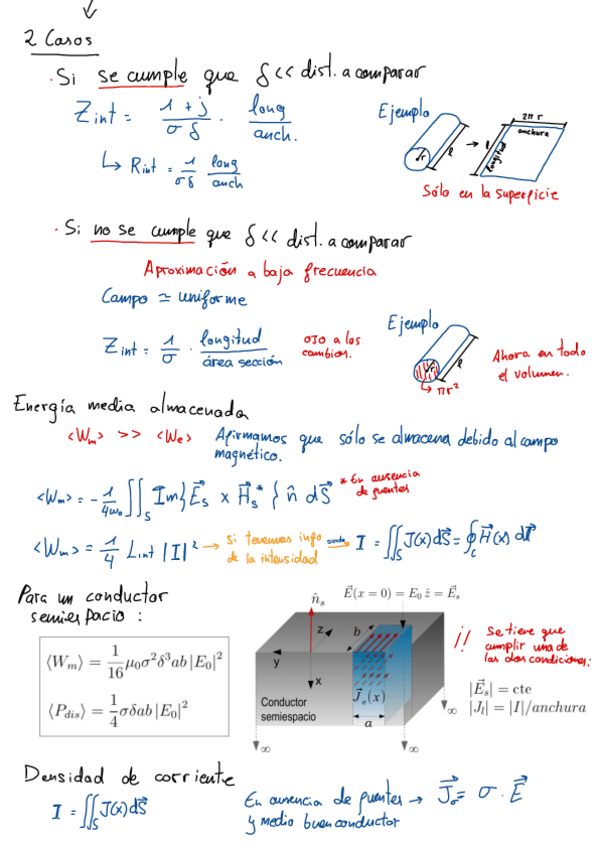 2 Casos
· Si se cumple que δ << dist. a comparar
Z int = (1 + j)/(σ δ) · long/anch.
↳ R int = 1/(σδ) long/anch
Ejemplo
r
l
→
2π r
anchura
l
longitud
Sólo en la superficie
· Si no se cumple que δ << dist. a comparar
Aproximación a baja frecuencia
Campo ≃ uniforme
Z int = 1/σ · longitud/área sección
OJO a los
cambios.
Ejemplo
r
l
↳ πr²
Ahora en todo
el volumen.
Energía media almacenada
<Wm> >> <We> Afirmamos que sólo se almacena debido al campo
magnético.
<Wm> = - 1/(4ω₀) ∬_S Im{E⃗s x H⃗s* } n̂ dS⃗
* En ausencia
de fuentes
<Wm> = 1/4 Lint |I|² → si tenemos info
de la intensidad
I = ∬_S J(x)dS⃗ = ∮_C H⃗(x) dl⃗
Para un conductor
semiespacio :
⟨Wm⟩ = 1/16 μ₀σ²δ³ab |E₀|²
⟨Pdis⟩ = 1/4 σδab |E₀|²
n̂s
E⃗(x = 0) = E₀ ẑ = E⃗s
z
b
y
x
J⃗σ(x)
Conductor
semiespacio
a
∞
∞
∞
¡! Se tiene que
cumplir una de
las dos condiciones:
|E⃗s| = cte
|Jl| = |I|/anchura
Densidad de corriente
I = ∬_S J(x)dS⃗
En ausencia de fuentes → J⃗σ = σ · E⃗
y medio buen conductor